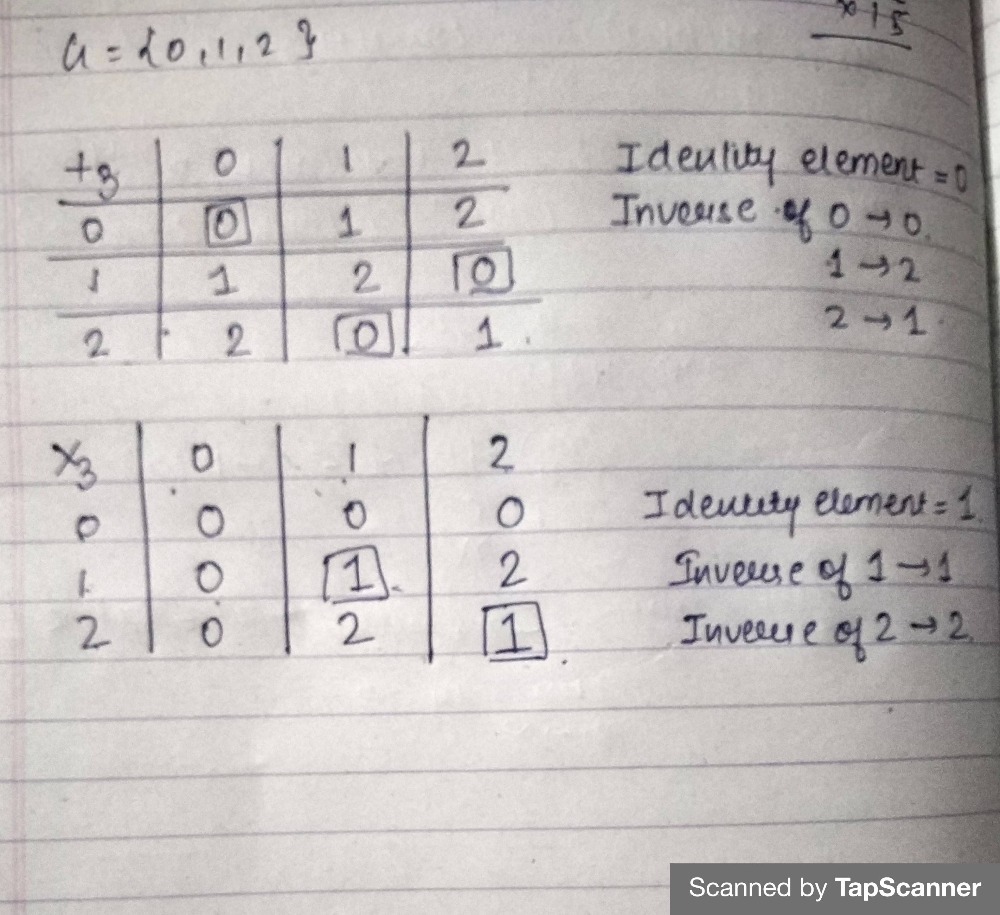 15
G = {0, 1, 2}
+3 0 1 2 Identity element = 0
0 0 1 2 Inverse of 0 → 0.
1 1 2 0 1 → 2
2 2 0 1 2 → 1
×3 0 1 2
0 0 0 0 Identity element = 1
1 0 1 2 Inverse of 1 → 1
2 0 2 1 Inverse of 2 → 2
Scanned by TapScanner